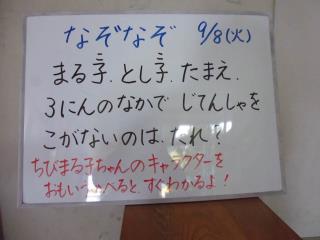 なぞなぞ 9/8(火)
まる子.とし子.たまえ.
3にんのなかで じてんしゃを
こがないのは.だれ?
ちびまる子ちゃんのキャラクターを
おもいうかべると すぐわかるよ!